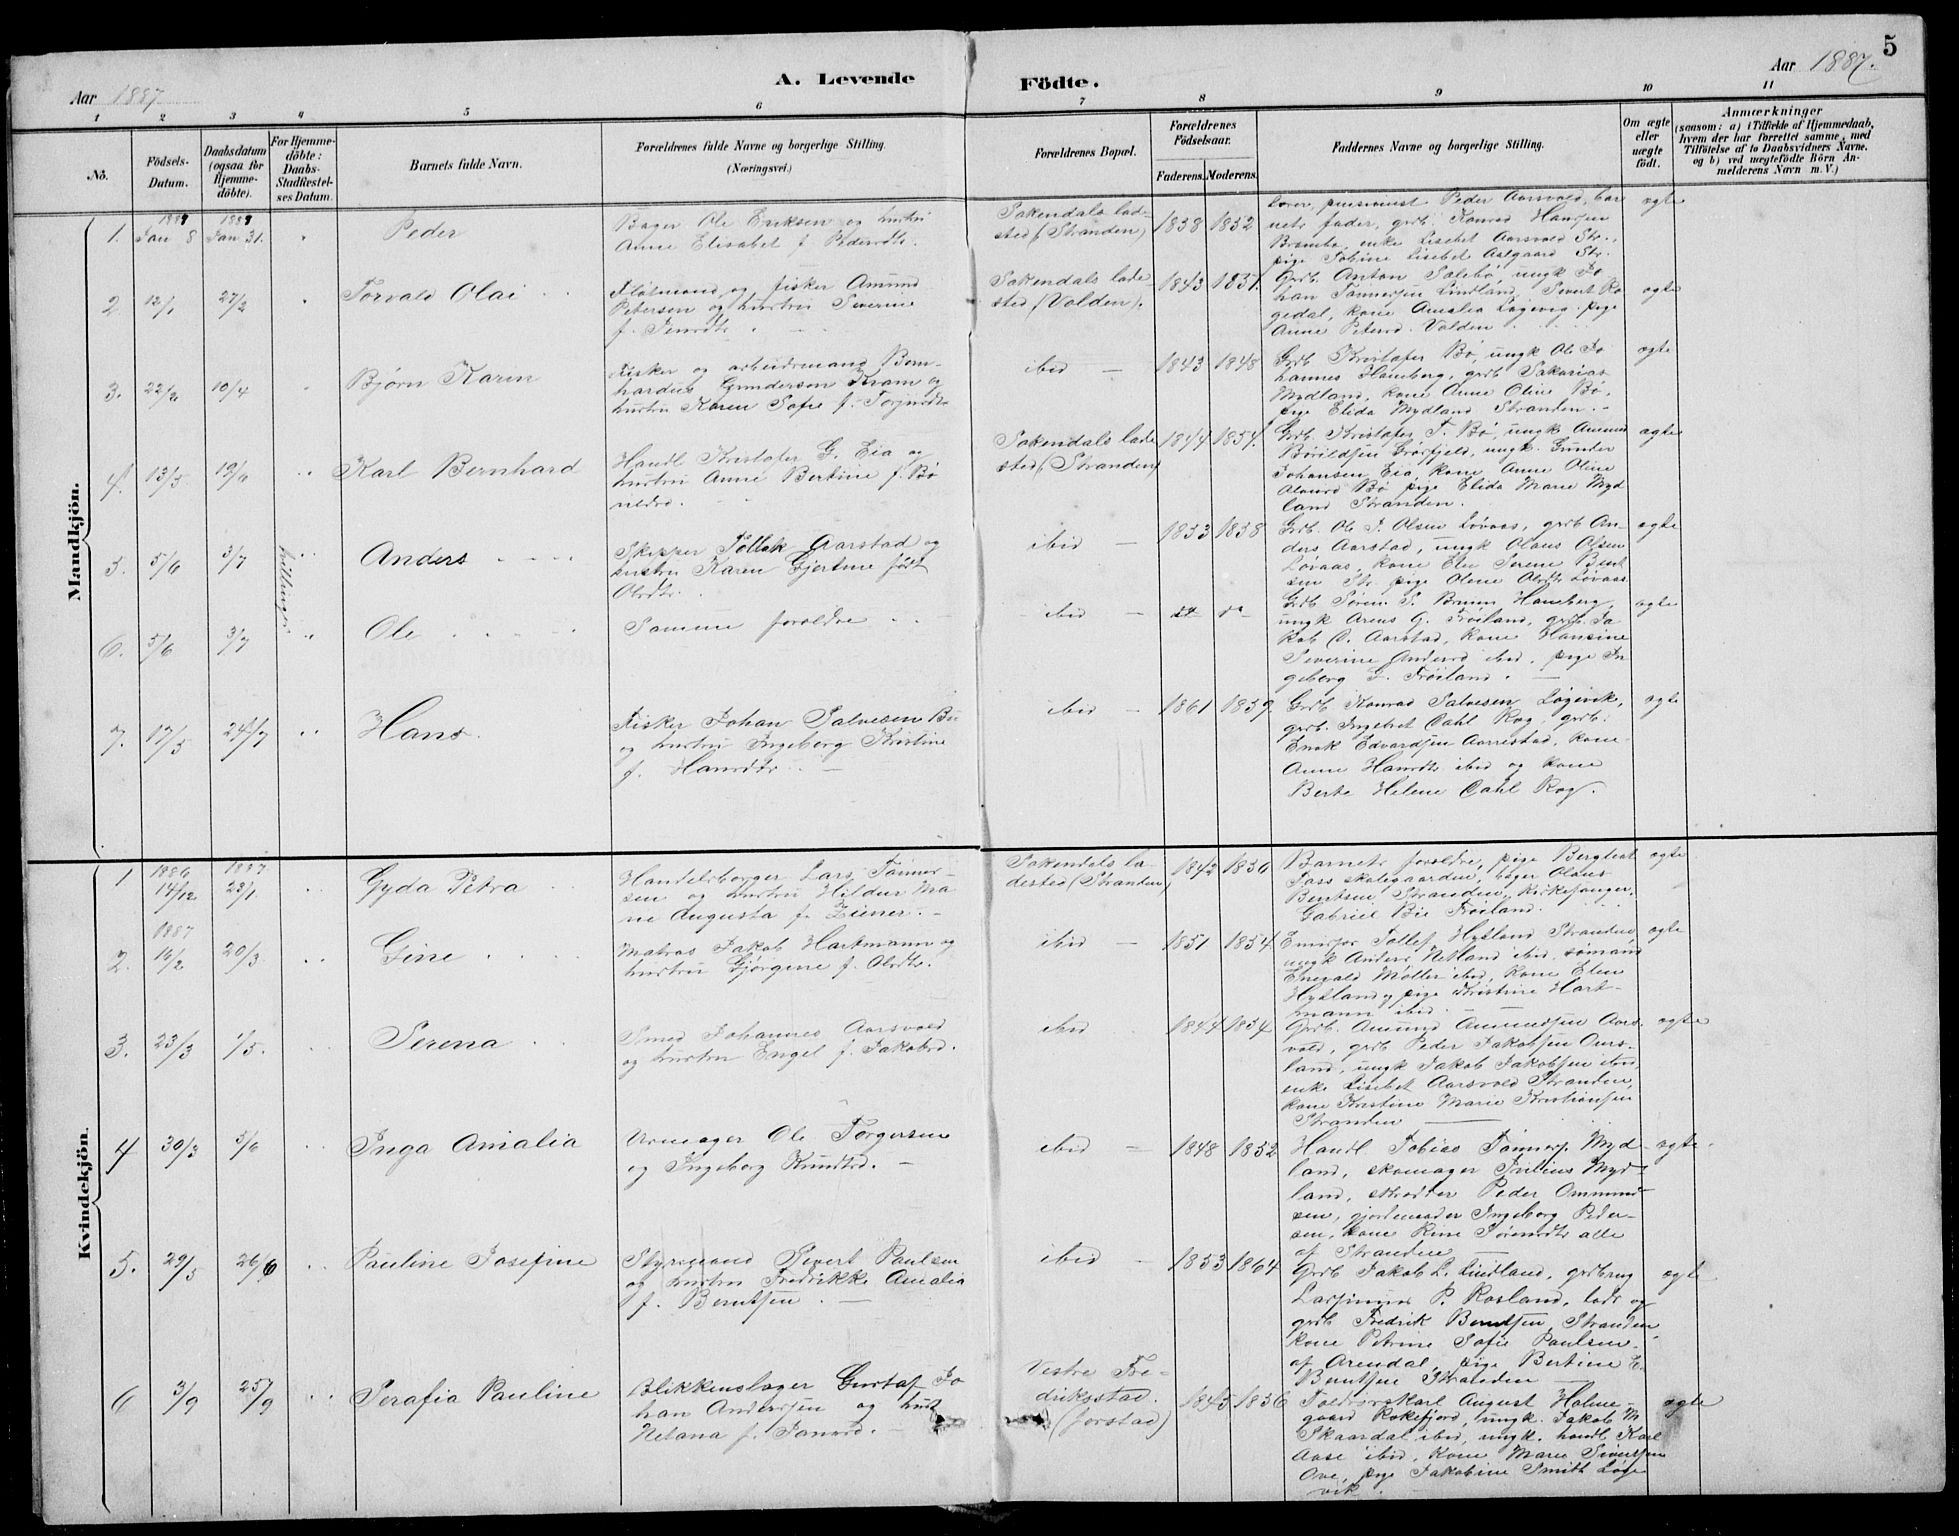 5
Aar 1887
A. Levende Födte.
Aar 1887.
1 2 3 4 5 6 7 8 9 10 11
No.
Födsels-
Datum.
Daabsdatum
(ogsaa for
Hjemme-
döbte).
For Hjemme-
döbte:
Daabs-
Stadfæstel-
ses Datum.
Barnets fulde Navn.
Forældrenes fulde Navne og borgerlige Stilling.
(Næringsvei.)
Forældrenes Bopæl.
Forældrenes
Födselsaar.
Faderens. Moderens.
Faddernes Navne og borgerlige Stilling.
Om ægte
eller
uægte
födt.
Anmærkninger
(saasom: a) i Tilfælde af Hjemmedaab,
hvem der har forrettet samme, med
Tilföielse af to Daabsvidners Navne.
og b) ved uægtefödte Börn An-
melderens Navn m. V.)
Mandkjön.
1. Jan 8 Jan 31. Peder
Bager Ole Eriksen og hustru
Anne Elisabet f. Pedersdtr.
Sokendals lade-
sted (Stranden) 1838 1832
lærer, pensionist Peder Aarsvold, bar
nets fader, grdb Konrad Hansen
enke Lisebet Aarsvold Str.,
pige Tobine Lisebet Aasgaard Str.
ægte
2 12/1 27/2 Torvald Olai
og fisker Amund
Petersen og hustru Severine
Sokendals lade
sted (Valden). 1843 1831.
Grdb. Anton Salebø, ungk Jo
han Tønnesen Lindland, Sivert Ro
gedal, kone Amalia Løgevig, pige
Anne Petersd. Valden
ægte
3. 22/2 10/4 Bjørn Karen
Fisker og arbeidsmand Bern
hardus Gundersen Kvam og
hustru Karen Sofie f. Torjusdtr
ibid 1843 1848
Grdb Kristofer Bø, ungk Ole Jo
hannes Hamberg, grdb Sakarias
Mydland, kone Anne Oline Bø,
pige Elida Mydland Stranden.
ægte
4. 13/5 19/6 Karl Bernhard
Handl Kristofer G. Eia og
hustru Anne Bertine f. Bø
rildsd.
Sokendals lade
sted (Stranden) 1844 1854.
Grdb. Kristofer T. Bø, ungk Amund
Børildsen Grøsfjeld, ungk. Gunder
Johansen Eia, kone Anne Oline
Bø pige Elida Marie Myd
land Stranden.
ægte
5. 5/6 3/7 tvillinger Anders
Skipper Tollak Aarstad og
hustru Karen Gjertine født
Olsdtr.
ibid 1833 1838
Grdb. Ole T. Olsen Løvaas, grdb An-
ders Aarstad, ungk Olaus Olsen
Løvaas, kone Else Serene Bent
sen Str. pige Olene Olsdtr Løvaas.
ægte
6. 5/6 3/7 Ole
Samme foreldre
ibid do do
Grdb Søren S. Bruun Hamberg,
ungk Arens G. Frøiland, grdb. Ja
kob C. Aarstad, kone Hansine
Severine Andersd ibid, pige In
geborg L. Frøiland.
ægte
7. 17/5 24/7 Hans.
Fisker Johan Salvesen Bu
og hustru Ingeborg Kristine
f. Hansdtr.
ibid 1861 1839.
Grdb Konrad Salvesen Løgevik,
grdb. Ingebret Cahl Rog, grdb.
Enok Edvardsen Aarrestad, kone
Anne Hansdtr ibid og kone
Berte Helene Cahl Rog.
ægte
Kvindekjön.
1 1886 14/12 1887 23/1. Gyda Petra
Handelsborger Lars Tønnes-
sen og hustru Hildur Ma
rie Augusta f. Ziener.
Sokendals la-
dested (Stranden) 1842 1856
Barnets foreldre, pige Bergteat
Tass skolegaarden, bager Olaus
Bentsen Stranden, kirkesanger
Gabriel Bie Frøiland.
ægte
2. 1887 16/2 20/3 Gine
Matros Jakob Hartmann og
hustru Gjørgine f. Olsdtr.
ibid 1851 1854.
Tollef Hysland Stranden
ungk Anders Netland ibid, sømand
Enevald Møller ibid, kone Elen
Hysland, pige Kristine Hart-
mann ibid.
ægte
3. 23/3 1/5. Serena
Smed Johannes Aarsvold
og hustru Engel f. Jakobsd.
ibid 1844 1854
Grdb. Amund Amundsen Aars
vold, grdb Peder Jakobsen Ours-
land, ungk Jakob Jakobsen ibid
enke Lisebet Aarsvold Stranden,
kone Kristine Marie Kristiansen
Stranden
ægte
4 30/3 5/6 Inga Amalia
Urmager Ole Torgersen
og Ingeborg Knudtsd.
ibid 1848 1852
Handl Tobias Tønnes. Myd
land, skomager Myd-
land, skrædder Peder Ommund
sen, gjordemoder Ingeborg Peder-
sen, kone Rine Sørensdtr alle
af Stranden
ægte
5. 29/5 26/6 Pauline Josefine
Styrmand Sivert Paulsen
og hustru Fredrikke Amalia
f. Berntsen.
ibid 1853 1864
Grdb Jakob L. Lindland, grdbrug
P. Rosland, lods og
grdb Fredrik Berntsen Stranden,
kone Petrine Sofie Paulsen
af Arendal, pige Bertine E.
Berntsen Stranden
ægte
6 3/9 25/9 Serafia Pauline
Blikkenslager Gustaf Jo
han Anderssen og hust
Netana f.
Vestre Fre-
drikstad.
(forstad) 1845 1836
Toldopsk. Karl August Holme-
gaard Rekefjord, ungk. Jakob M
Skaardal ibid, ungk. handl Karl
Aase ibid, kone Marie Sivertsen
Ove, pige Jakobine Smith Løge
vik.
ægte